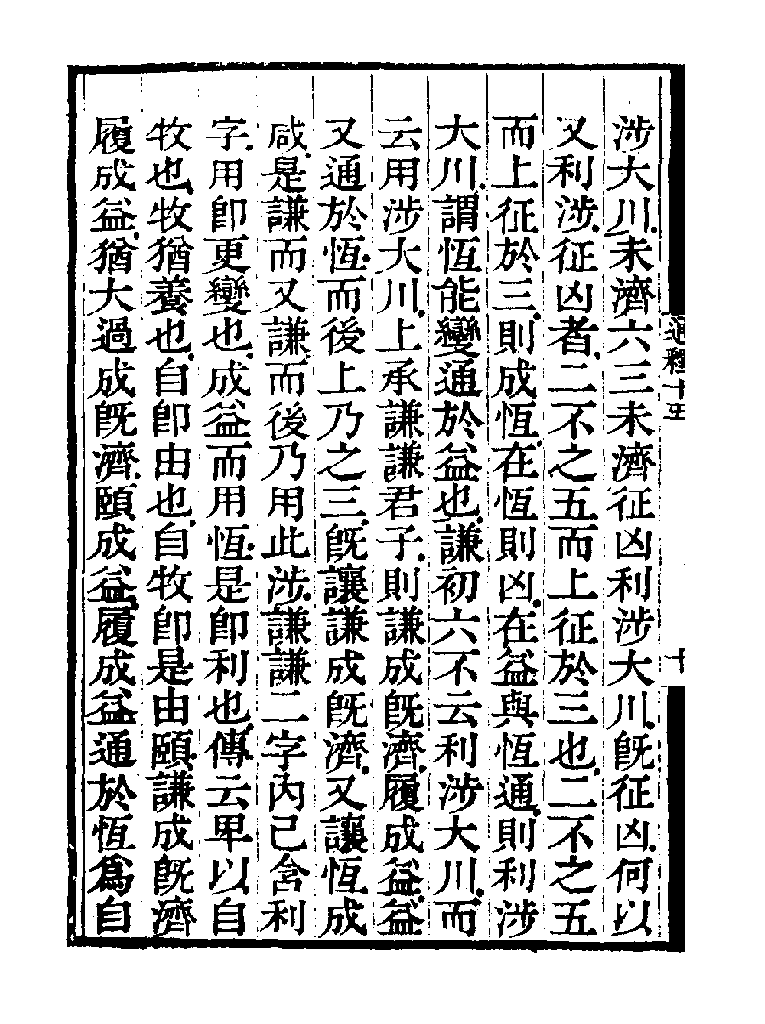 涉大川未濟六三未濟征凶利涉大川旣征凶何以
又利涉征凶者二不之五而上征於三也二不之五
而上征於三則成恆在恆則凶在益與恆通則利涉
大川謂恆能變通於益也謙初六不云利涉大川而
云用涉大川上承謙謙君子則謙成旣濟履成益益
又通於恆而後上乃之三旣讓謙成旣濟又讓恆成
咸是謙而又謙而後乃用此涉謙謙二字內已含利
字用卽更變也成益而用恆是卽利也傳云卑以自
牧也牧猶養也自卽由也自牧卽是由頤謙成旣濟
履成益猶大過成旣濟頤成益履成益通於恆爲自
通釋十五
十